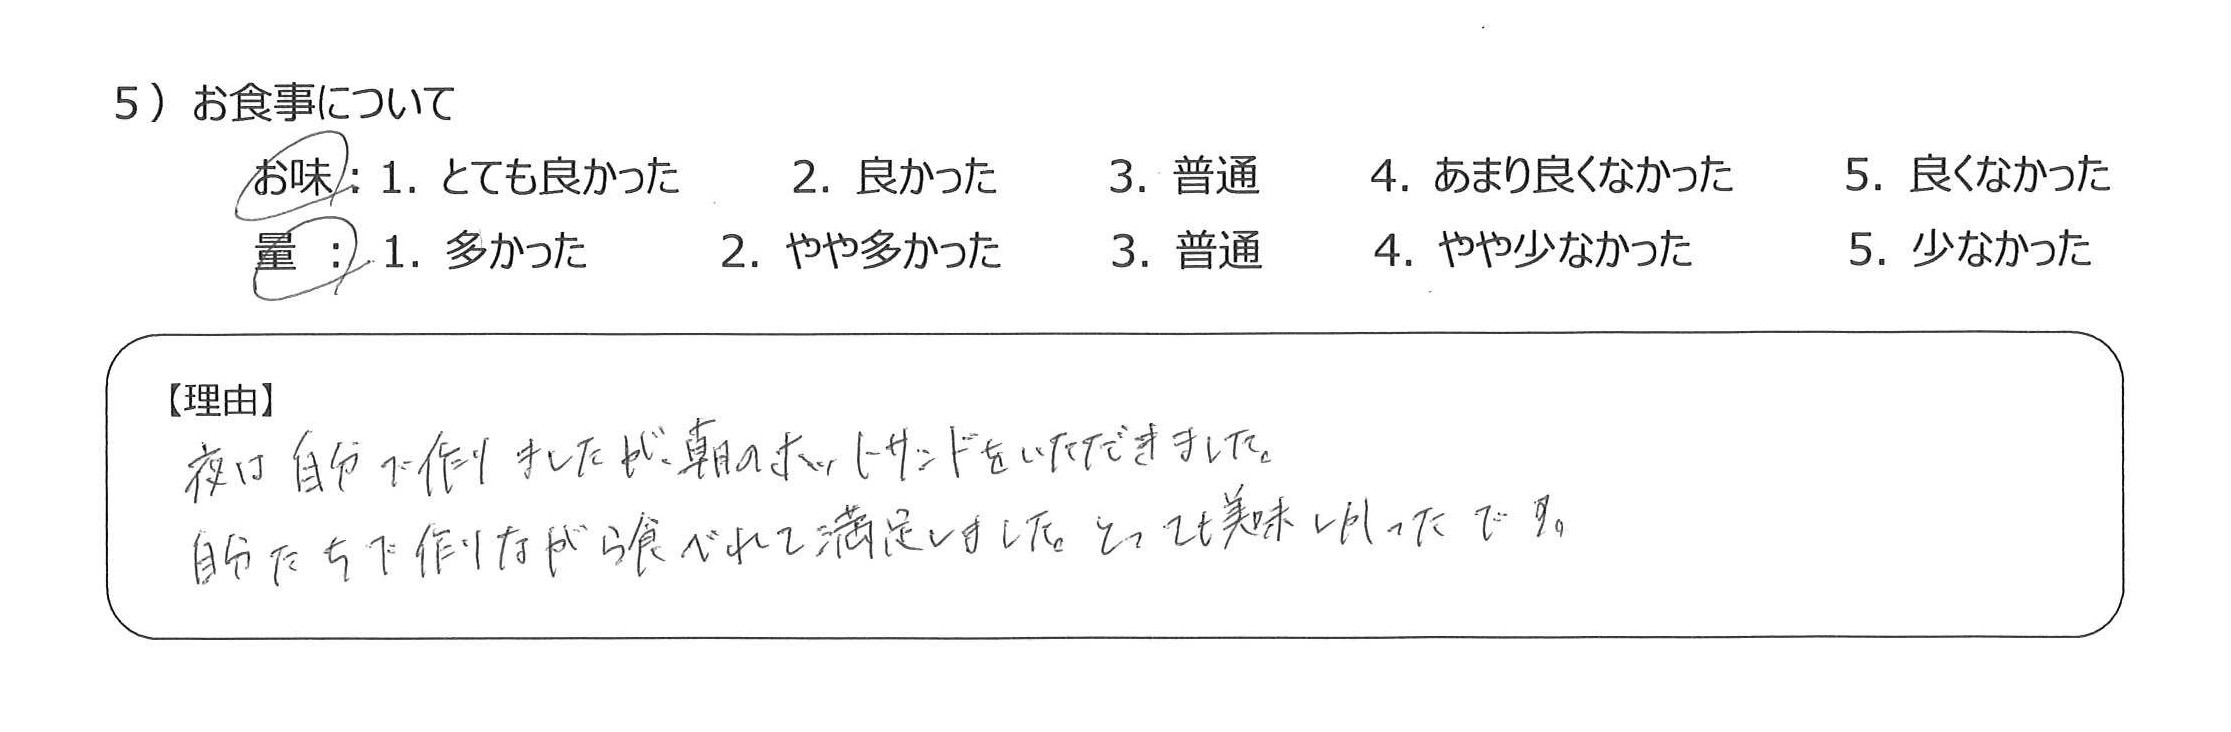 5）お食事について
お味：1. とても良かった 2. 良かった 3. 普通 4. あまり良くなかった 5. 良くなかった
量 ：1. 多かった 2. やや多かった 3. 普通 4. やや少なかった 5. 少なかった
【理由】
夜は自分で作りましたが、朝のホットサンドをいただきました。
自分たちで作りながら食べれて満足しました。とっても美味しかったです。